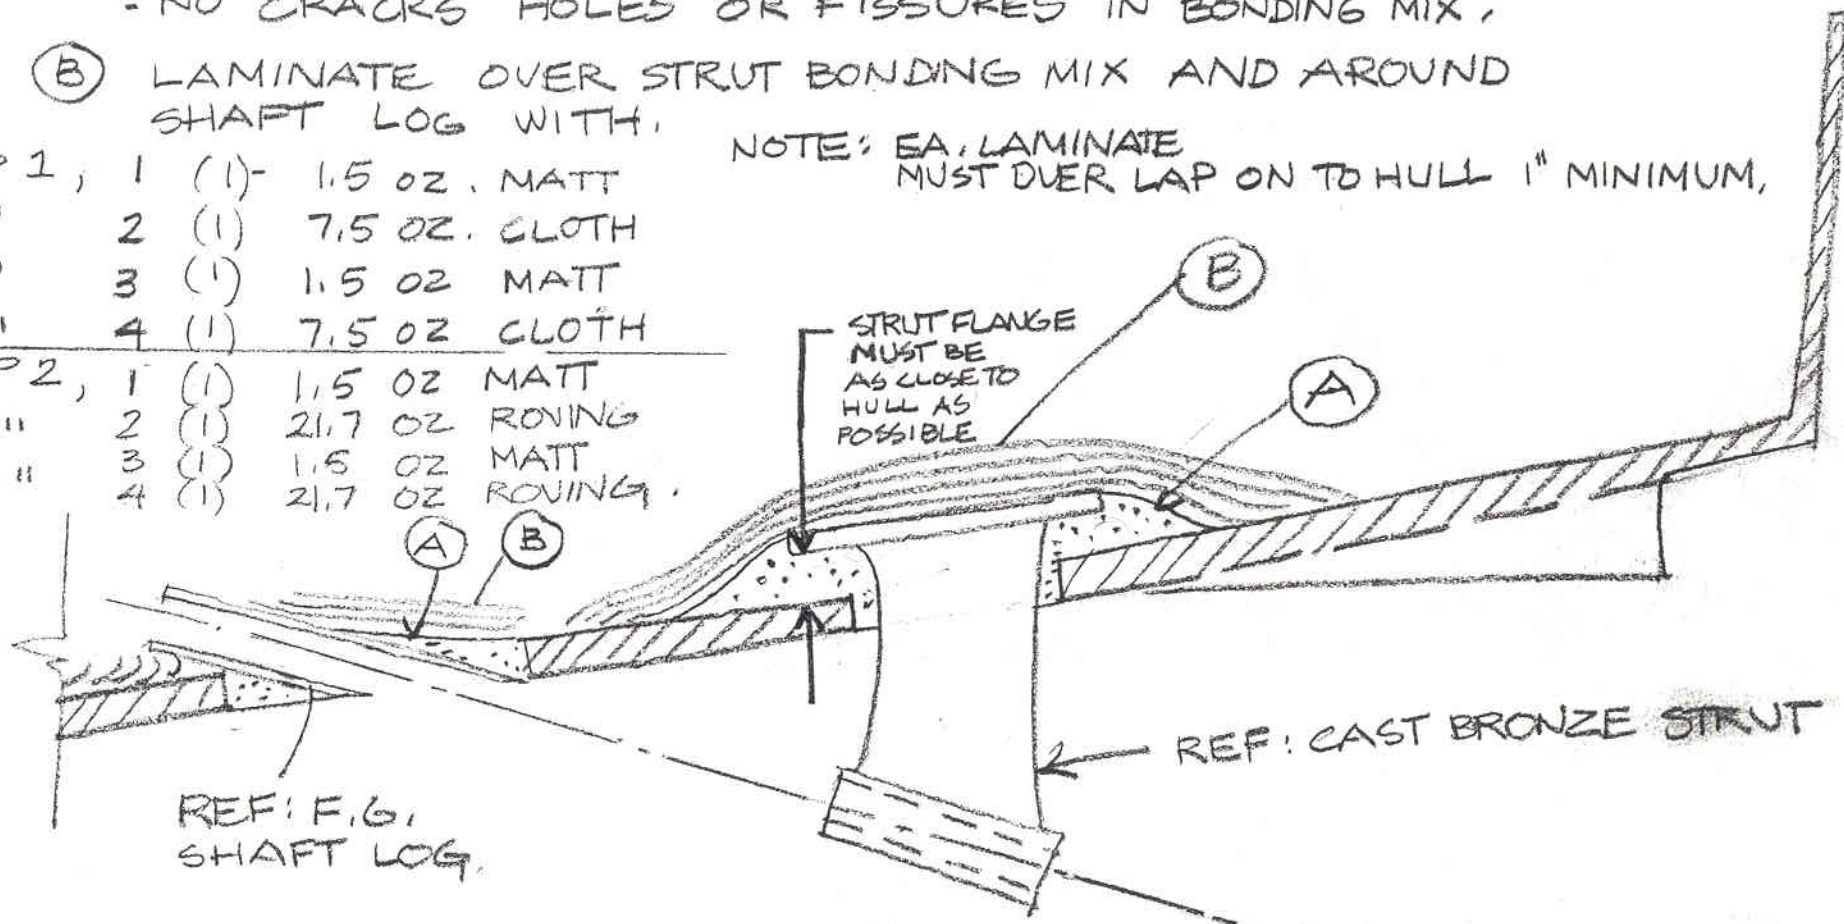 - NO CRACKS HOLES OR FISSURES IN BONDING MIX.
(B) LAMINATE OVER STRUT BONDING MIX AND AROUND
SHAFT LOG WITH.
NOTE: EA. LAMINATE
MUST OVER LAP ON TO HULL 1" MINIMUM.
P 1, 1 (1)- 1.5 OZ. MATT
" 2 (1) 7.5 OZ. CLOTH
" 3 (1) 1.5 OZ MATT
" 4 (1) 7.5 OZ CLOTH
P 2, 1 (1) 1.5 OZ MATT
" 2 (1) 21.7 OZ ROVING
" 3 (1) 1.5 OZ MATT
4 (1) 21.7 OZ ROVING.
B
STRUT FLANGE
MUST BE
AS CLOSE TO
HULL AS
POSSIBLE
A
A
B
REF: CAST BRONZE STRUT
REF: F.G.
SHAFT LOG.